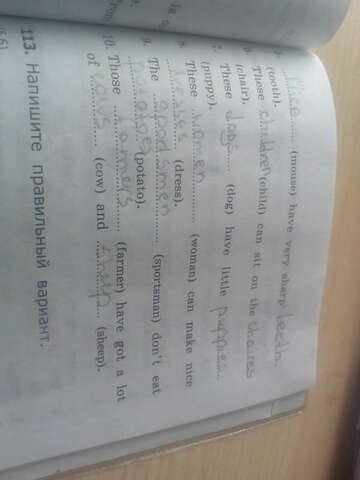 5. Mice ...... (mouse) have very sharp teeth
(tooth).
6. These children (child) can sit on the chaires
(chair).
7. These dogs ...... (dog) have little puppies...
(puppy).
8. These women ............ (woman) can make nice
dresses ...... (dress).
9. The sportsmen ...... (sportsman) don't eat
(potato).
10. Those farmers ...... (farmer) have got a lot
of cows ...... (cow) and sheep ... (sheep).
113. Напишите правильный вариант.